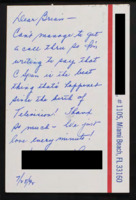 Dear Brian —
Can't manage to get
a call thru so I'm
writing to say that
C Span is the best
thing that's happened
since the birth of
Television! Thank
so much —
every minute!
7/5/94
# 1105, Miami Beach, FL 33160